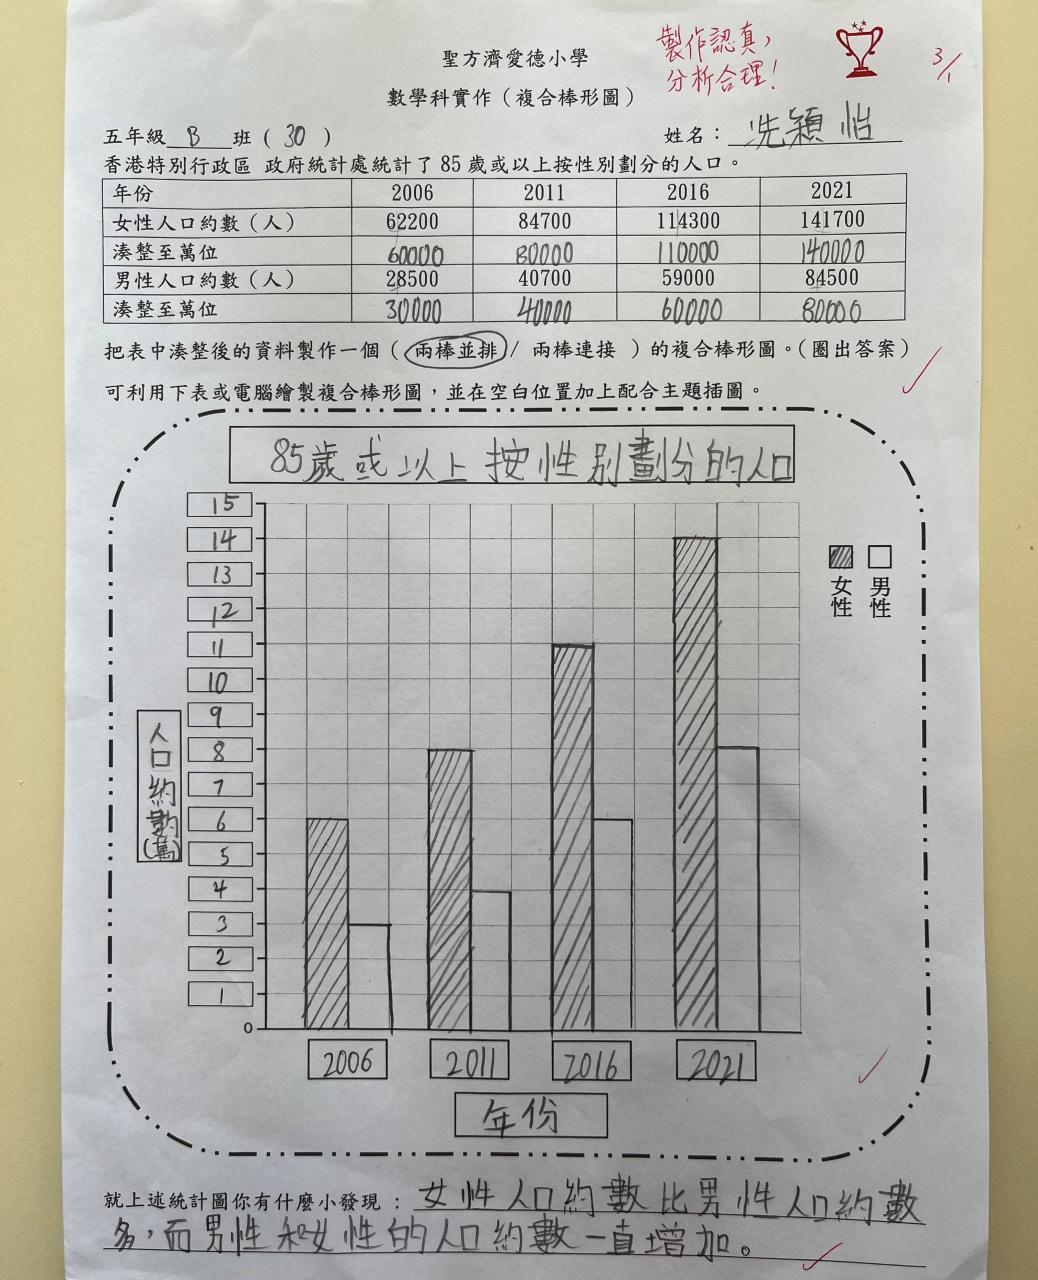 製作認真，
分析合理！
3/1
聖方濟愛德小學
數學科實作（複合棒形圖）
五年級 B 班（ 30 ） 姓名： 冼穎怡
香港特別行政區 政府統計處統計了 85 歲或以上按性別劃分的人口。
年份 2006 2011 2016 2021
女性人口約數（人） 62200 84700 114300 141700
湊整至萬位 60000 80000 110000 140000
男性人口約數（人） 28500 40700 59000 84500
湊整至萬位 30000 40000 60000 80000
把表中湊整後的資料製作一個（ 兩棒並排 / 兩棒連接 ）的複合棒形圖。（圈出答案）
可利用下表或電腦繪製複合棒形圖，並在空白位置加上配合主題插圖。
85歲或以上按性別劃分的人口
15
14
13
12
11
10
9
8
7
6
5
4
3
2
1
0
人口約數(萬)
女性 男性
2006 2011 2016 2021
年份
就上述統計圖你有什麼小發現： 女性人口約數比男性人口約數
多，而男性和女性的人口約數一直增加。